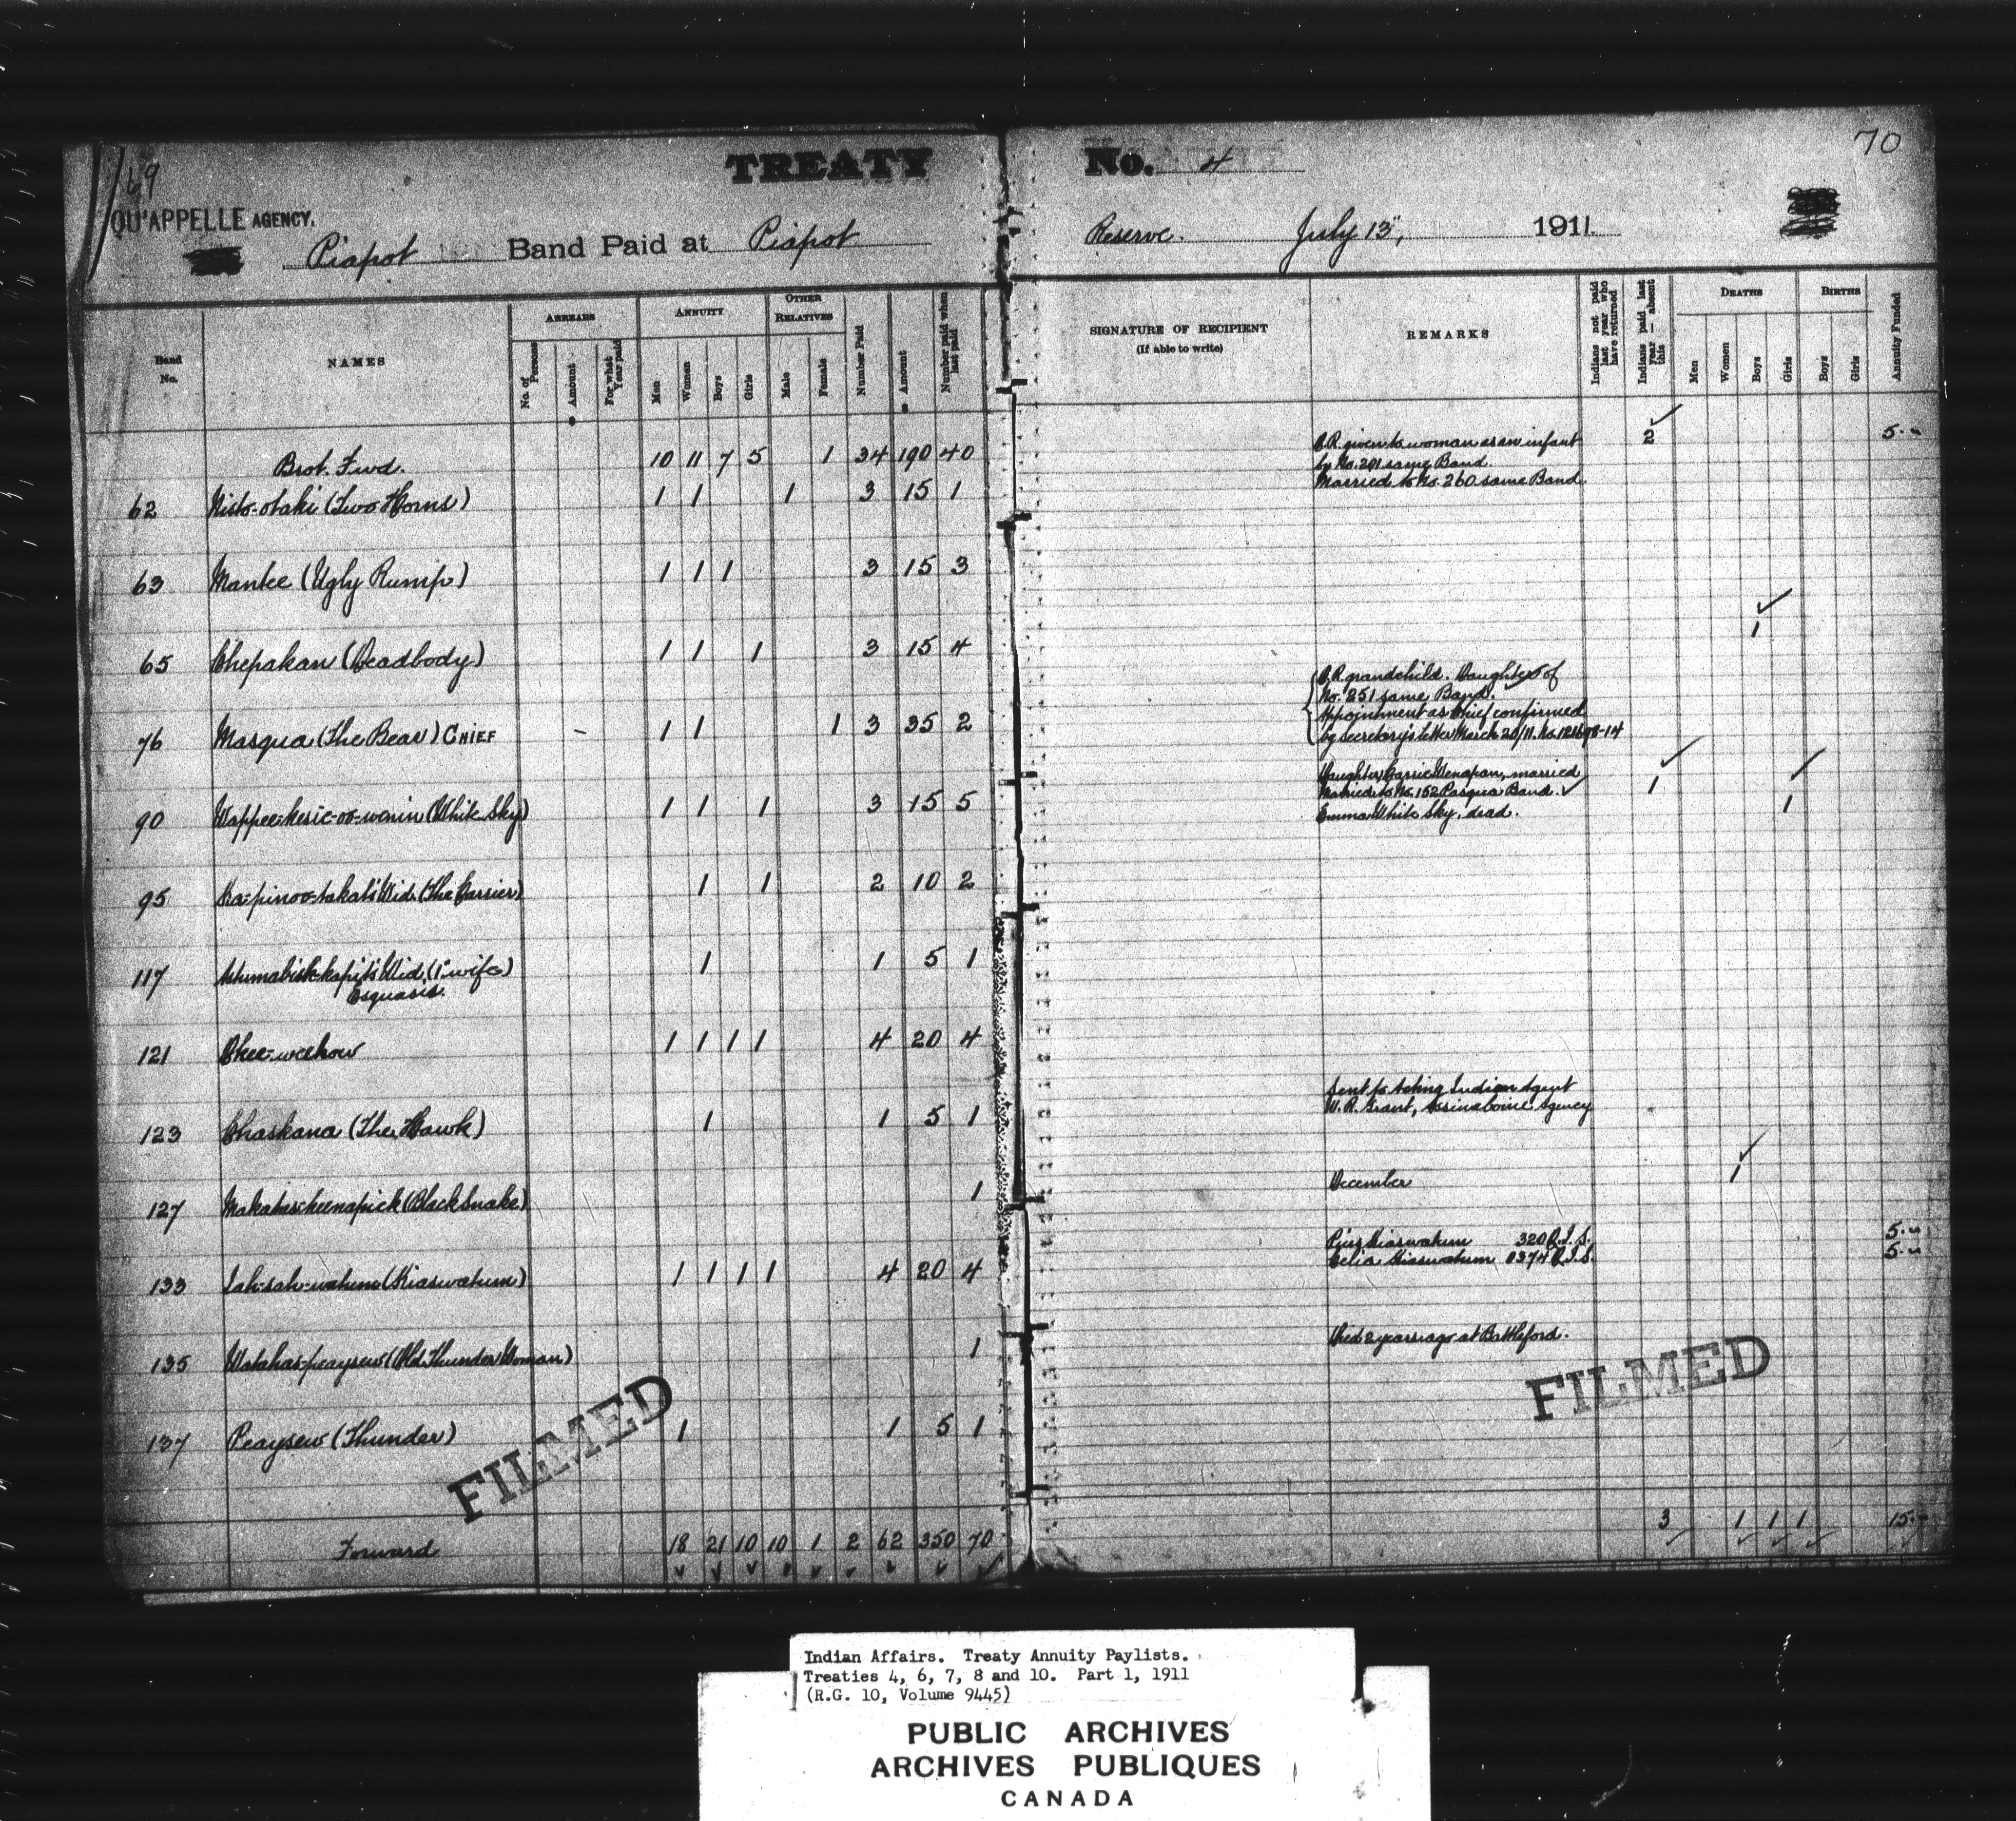 69
TREATY No. 4
70
QU'APPELLE AGENCY.
Piapot Band Paid at Piapot Reserve. July 13", 1911.
Band No.
NAMES
ARREARS
No. of Persons
Amount
For what Year paid
ANNUITY
Men
Women
Boys
Girls
OTHER RELATIVES
Male
Female
Number Paid
Amount
Number paid when last paid
SIGNATURE OF RECIPIENT
(If able to write)
REMARKS
Indians not paid last year who have returned
Indians paid last year — absent this
DEATHS
Men
Women
Boys
Girls
BIRTHS
Boys
Girls
Annuity Funded
Brot. Fwd. 10 11 7 5 1 34 190 40 2 5.
O.R. given to woman as an infant
by No. 291 same Band.
Married to No. 260 same Band
62 Nisto-otaki (Two Horns) 1 1 1 3 15 1
63 Mankee (Ugly Rump) 1 1 1 3 15 3
65 Chepakan (Deadbody) 1 1 1 3 15 4 1
O.R. grandchild. Daughter of
No. 251 same Band.
Appointment as Chief confirmed
by secretary's letter March 20/11. No. 121698-14
76 Masqua (The Bear) CHIEF - 1 1 1 3 35 2
Daughter, Carrie Wenapan, married
Married to No. 152 Pasqua Band. 1
Emma White Sky, dead. 1
90 Wappee-kesic-oo-wenin (White Sky) 1 1 1 3 15 5
95 Ka-pinoo-takat's Wid. (The Carrier) 1 1 2 10 2
117 Wid. (1st wife) 1 1 5 1
Esquasis.
121 Chee-weekow 1 1 1 1 4 20 4
Sent to Acting Indian Agent
W. R. Grant, Assinaboine Agency
123 Chaskana (The Hawk) 1 1 5 1
December 1
127 (Black Snake) 1
Pius Kiaswatum 320 Q.I.S. 5.
Celia Kiaswatum 0374 Q.I.S. 5.
133 Sah-sah-watum (Kiaswatum) 1 1 1 1 4 20 4
Died 2 years ago at Battleford.
135 Watahas-peaysew (Old Thunder Woman) 1
137 Peaysew (Thunder) 1 1 5 1
FILMED
FILMED
Forward 18 21 10 10 1 2 62 350 70 3 1 1 1 15.
Indian Affairs. Treaty Annuity Paylists.
Treaties 4, 6, 7, 8 and 10. Part 1, 1911
(R.G. 10, Volume 9445)
PUBLIC ARCHIVES
ARCHIVES PUBLIQUES
CANADA